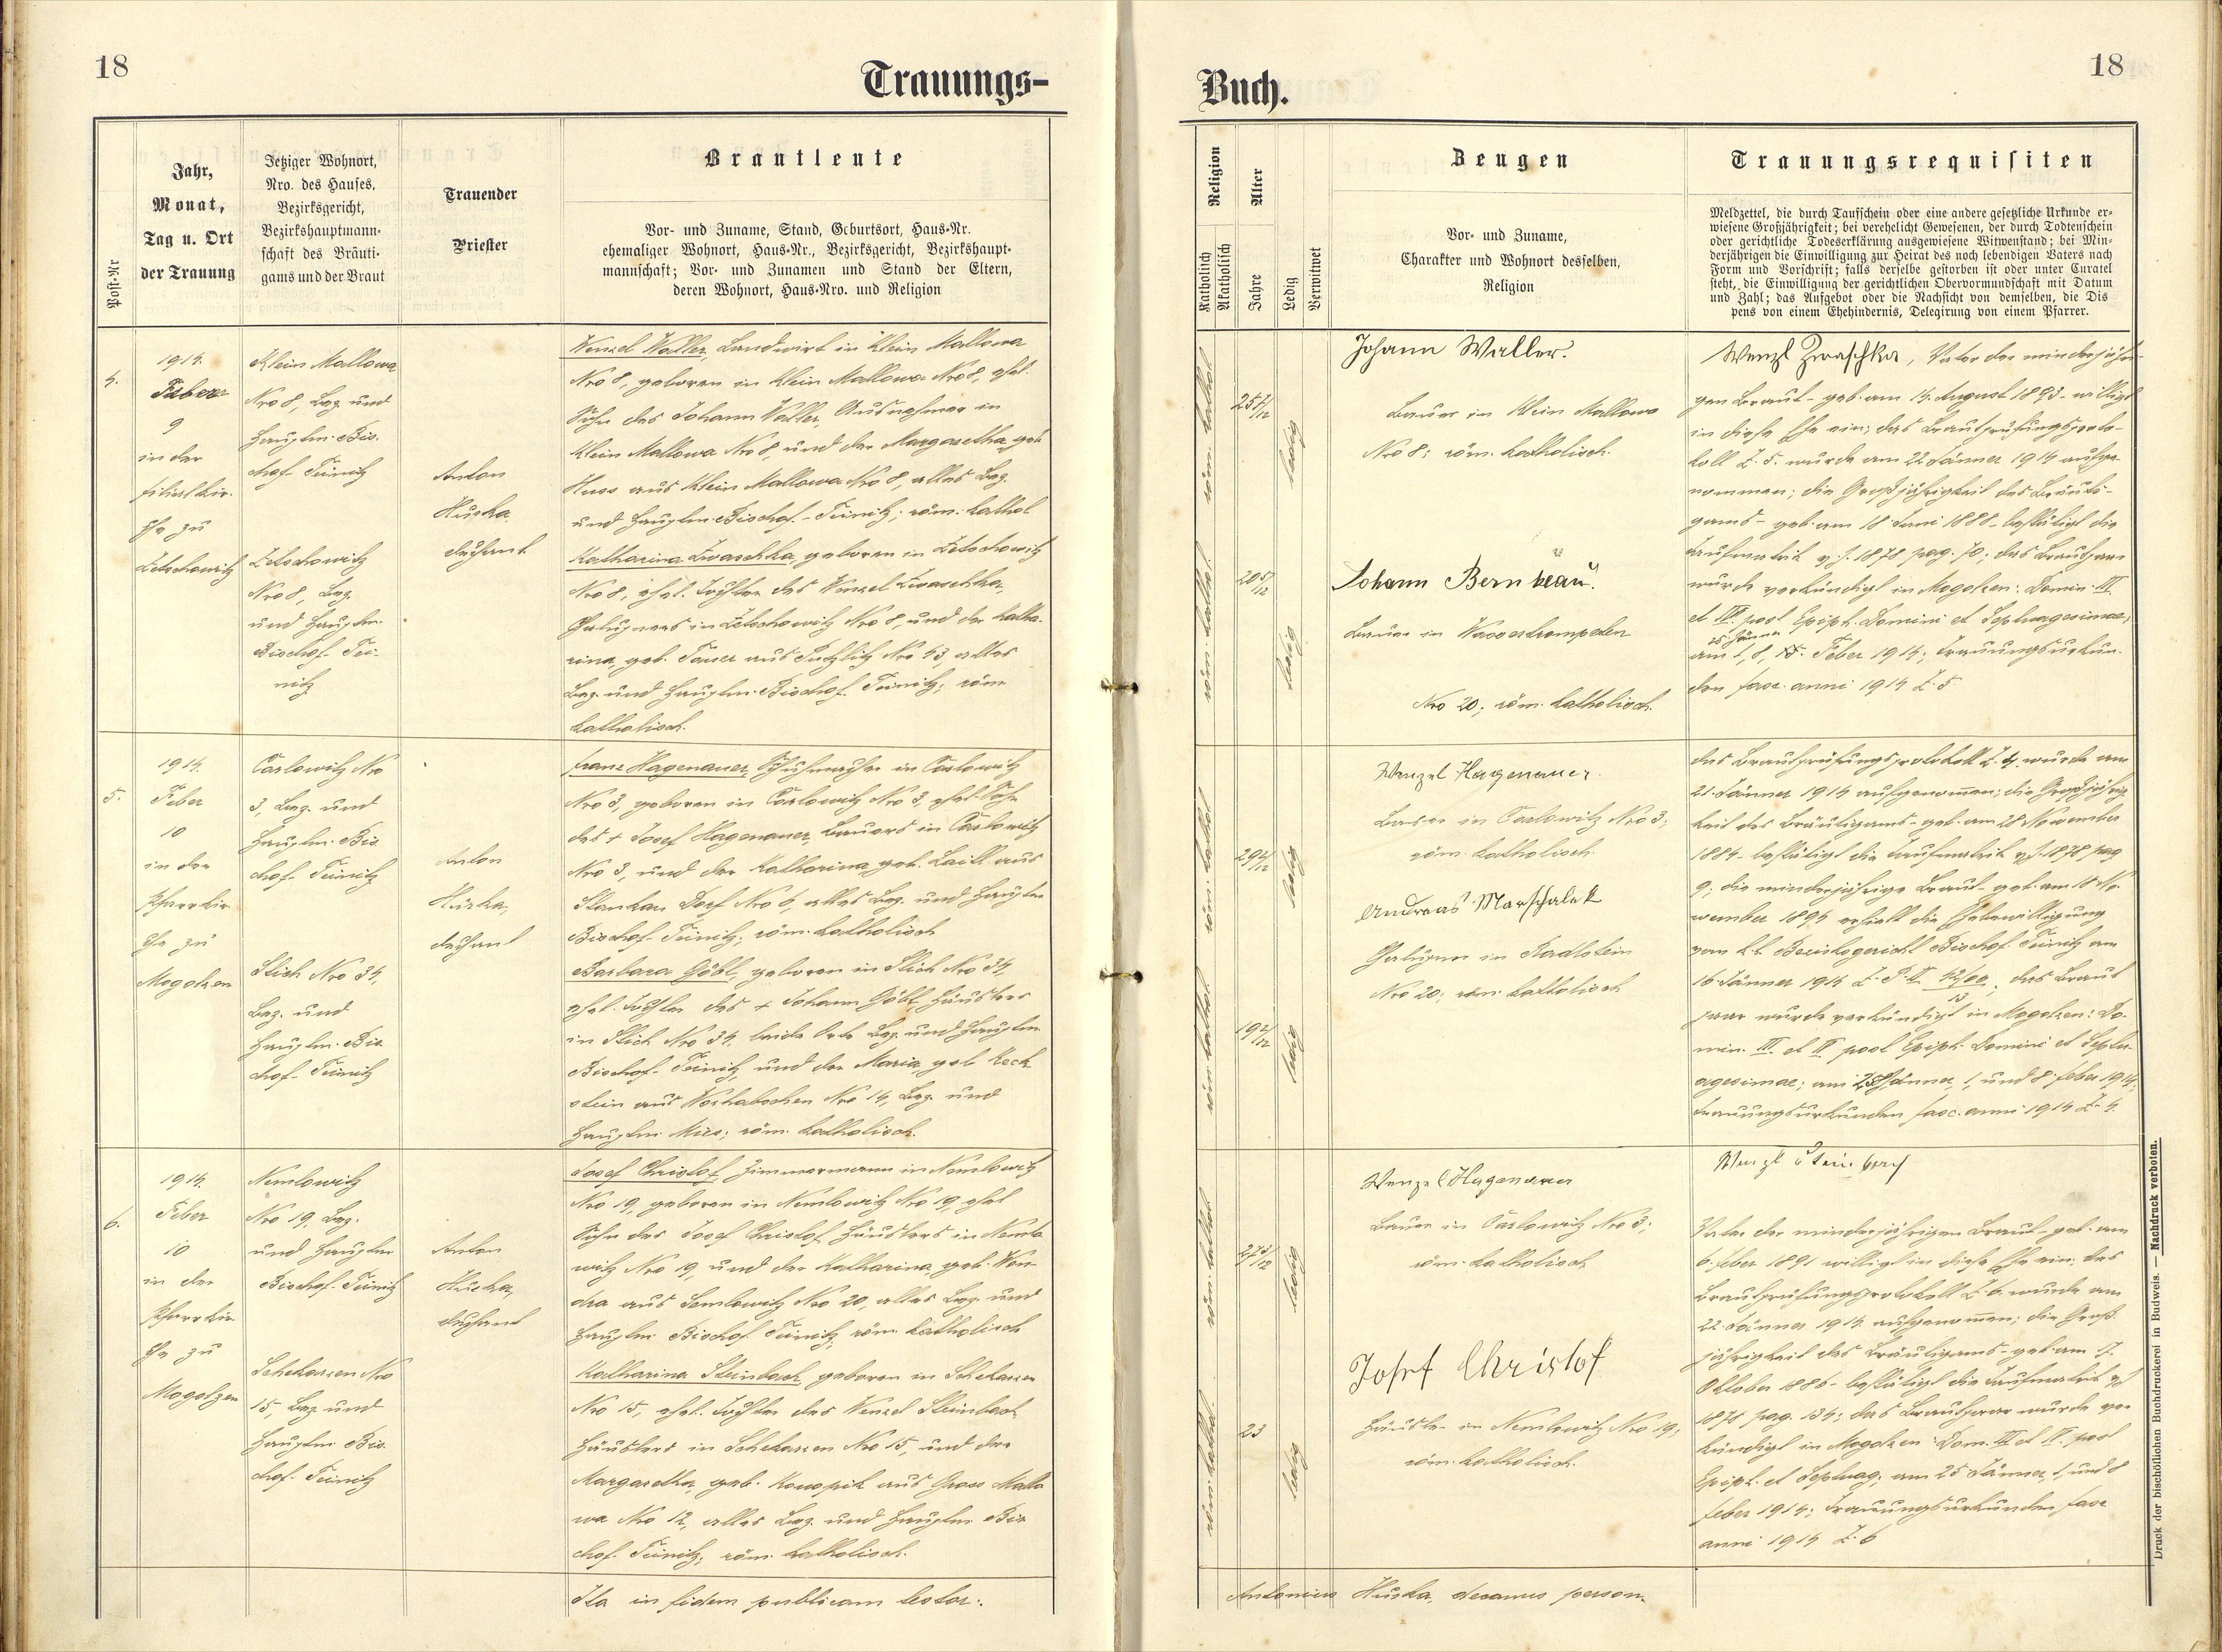 18
Trauungs-
Post-Nr
Jahr,
Monat,
Tag u. Ort
der Trauung
Jetziger Wohnort,
Nro. des Hauses,
Bezirksgericht,
Bezirkshauptmann-
schaft des Bräuti-
gams und der Braut
Trauender
Priester
Brautleute
Vor- und Zuname, Stand, Geburtsort, Haus-Nr.
ehemaliger Wohnort, Haus-Nr., Bezirksgericht, Bezirkshaupt-
mannschaft; Vor- und Zunamen und Stand der Eltern,
deren Wohnort, Haus-Nro. und Religion
4.
1914.
Feber
9
in der
Filialkir-
che zu
Zetschowitz
Klein Mallowa
Nro 8, Bez. und
Hauptm. Bis-
chof-Teinitz
Zetschowitz
Nro 8, Bez.
und Hauptm.
Bischof-Tei-
nitz
Anton
Huska,
dechant
Wenzel Waller, Landwirt in Klein Mallowa
Nro 8, geboren in Klein Mallowa Nro 8, ehel.
Sohn des Johann Waller, Ausnehmer in
Klein Mallowa Nro 8, und der Margaretha, geb.
Huss aus Klein Mallowa Nro 8, alles Bez.
und Hauptm. Bischof-Teinitz; röm. kathol
Katharina Zwaschka, geboren in Zetschowitz
Nro 8, ehel. Tochter des Wenzel Zwaschka,
Chalupners in Zetschowitz Nro 8, und der Katha-
rina, geb. Tauer aus Putzlitz Nro 43, alles
Bez. und Hauptm. Bischof-Teinitz; röm
katholisch.
5.
1914.
Feber
10
in der
Pfarrkir-
che zu
Mogolzen
Carlowitz Nro
3, Bez. und
Hauptm. Bis-
chof-Teinitz
Stich Nro 34,
Bez. und
Hauptm. Bis-
chof-Teinitz
Anton
Huska,
dechant
Franz Hagenauer, Schuhmacher in Carlowitz
Nro 3, geboren in Carlowitz Nro 3, ehel. Sohn
des + Josef Hagenauer, Bauers in Carlowitz
Nro 3, und der Katharina, geb. aus
Stankau Dorf Nro 6, alles Bez. und Hauptm
Bischof-Teinitz; röm. katholisch
Barbara Göbl, geboren in Stich Nro 34,
ehel. Tochter des + Johann Göbl, Häuslers
in Stich Nro 34, beide Orte Bez. und Hauptm.
Bischof-Teinitz, und der Maria, geb. Reck-
stein aus Nro 14, Bez. und
Hauptm. Mies; röm. katholisch.
6.
1914.
Feber
10
in der
Pfarrkir-
che zu
Mogolzen
Nemlowitz
Nro 19, Bez.
und Hauptm
Bischof-Teinitz
Schekarzen Nro
15, Bez. und
Hauptm. Bis-
chof-Teinitz
Anton
Huska,
dechant
Josef Christof, Zimmermann in Nemlowitz
Nro 19, geboren in Nemlowitz Nro 19, ehel
Sohn des Josef Christof, Häuslers in Nemlo-
witz Nro 19, und der Katharina, geb. Won-
dra aus Semlowitz Nro 20, alles Bez. und
Hauptm. Bischof Teinitz; röm. katholisch
Katharina Steinbach, geboren in Schekarzen
Nro 15, ehel. Tochter des Wenzel Steinbach,
Häuslers in Schekarzen Nro 15, und der
Margaretha, geb. Konopik aus Gross Mallo-
wa Nro 12, alles Bez. und Hauptm. Bis-
chof-Teinitz; röm. katholisch.
Ita in fidem publicam testor:
18
Buch.
Religion
Katholisch
Akatholisch
Alter
Jahre
Ledig
Verwitwet
Zeugen
Vor- und Zuname,
Charakter und Wohnort desselben,
Religion
Trauungsrequisiten
Meldzettel, die durch Taufschein oder eine andere gesetzliche Urkunde er-
wiesene Großjährigkeit; bei verehelicht Gewesenen, der durch Todtenschein
oder gerichtliche Todeserklärung ausgewiesene Witwenstand; bei Min-
derjährigen die Einwilligung zur Heirat des noch lebendigen Vaters nach
Form und Vorschrift; falls derselbe gestorben ist oder unter Curatel
steht, die Einwilligung der gerichtlichen Obervormundschaft mit Datum
und Zahl; das Aufgebot oder die Nachsicht von demselben, die Dis
pens von einem Ehehindernis, Delegirung von einem Pfarrer.
röm. kathol
25 7/12
ledig
röm. kathol.
20 5/12
ledig
Johann Waller.
Bauer in Klein Mallowa
Nro 8; röm. katholisch.
Johann
Bauer in Wassertrompeten
Nro 20; röm. katholisch.
Wenzl Zwaschka, Vater der minderjähri-
gen Braut - geb. am 14. August 1893 - willigt
in diese Ehe ein; das Brautprüfungsproto-
koll Z. 5. wurde am 22 Jänner 1914 aufge-
nommen; die Großjährigkeit des Bräuti-
gams - geb. am 18 Juni 1888 - bestätigt die
Taufmatrik v. J. 1878 pag. 70; das Brautpaar
wurde verkündigt in Mogolzen: Domin. III
et IV. post Epiph. Domini et Septuagesimae;
25 Jänner
am 1, 8, Feber 1914; Trauungsurkun-
den fasc. anni 1914 Z. 5.
röm. kathol
29 2/12
ledig
röm. kathol
19 2/12
ledig
Wenzel Hagenauer.
Bauer in Carlowitz Nro 3;
röm. katholisch.
Andreas Marschalek
Chalupner in Radlstein
Nro 20; röm. katholisch
das Brautprüfungsprotokoll Z. 4. wurde am
21. Jänner 1914 aufgenommen; die Großjährig-
keit des Bräutigams - geb. am 28 November
1884 - bestätigt die Taufmatrik v. J. 1878 pag
9; die minderjährige Braut - geb. am 18 No-
vember 1894 erhielt die Ehebewilligung
vom k. k. Bezirksgericht Bischof-Teinitz am
16 Jänner 1914 Z. P. II; das Braut
paar wurde verkündigt in Mogolzen: Do-
min. III. et IV post Epiph. Domini et Septu-
agesimae; am 25 Jänner, 1, und 8 feber 1914;
Trauungsurkunden fasc. anni 1914 Z. 4.
röm. kathol
27 3/12
ledig
röm. kathol
23
ledig
Wenzel Hagenauer
Bauer in Carlowitz Nro 3;
röm. katholisch
Josef Christof
Häusler in Nemlowitz Nro 19;
röm. katholisch.
Wenzl Steinbach
Vater der minderjährigen Braut - geb. am
6. feber 1891 willigt in diese Ehe ein; das
Brautprüfungsprotokoll Z. 6. wurde am
22. Jänner 1914. aufgenommen; die Groß-
jährigkeit des Bräutigams - geb. am 7.
Oktober 1886 - bestätigt die Taufmatrik v J
1878 pag. 134; das Brautpaar wurde ver-
kündigt in Mogolzen: Dom. III et IV. post
Epiph. et Septuag; am 25 Jänner, 1, und 8
feber 1914; Trauungsurkunden fasc
anni 1914 Z. 6
Antonius Huska, decanus person.
Druck der bischöflichen Buchdruckerei in Budweis. — Nachdruck verboten.